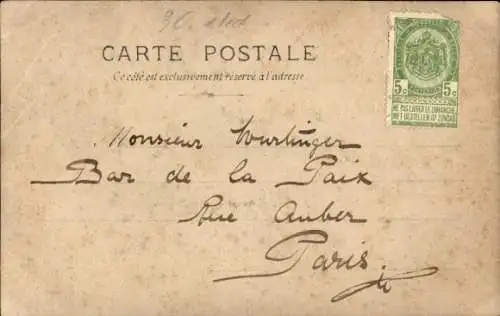 30.
CARTE POSTALE
Ce côté est exclusivement réservé à l'adresse
5c 5c
NE PAS LIVRER LE DIMANCHE
NIET BESTELLEN OP ZONDAG
Monsieur Wurlinger
Bar de la Paix
Rue Auber
Paris